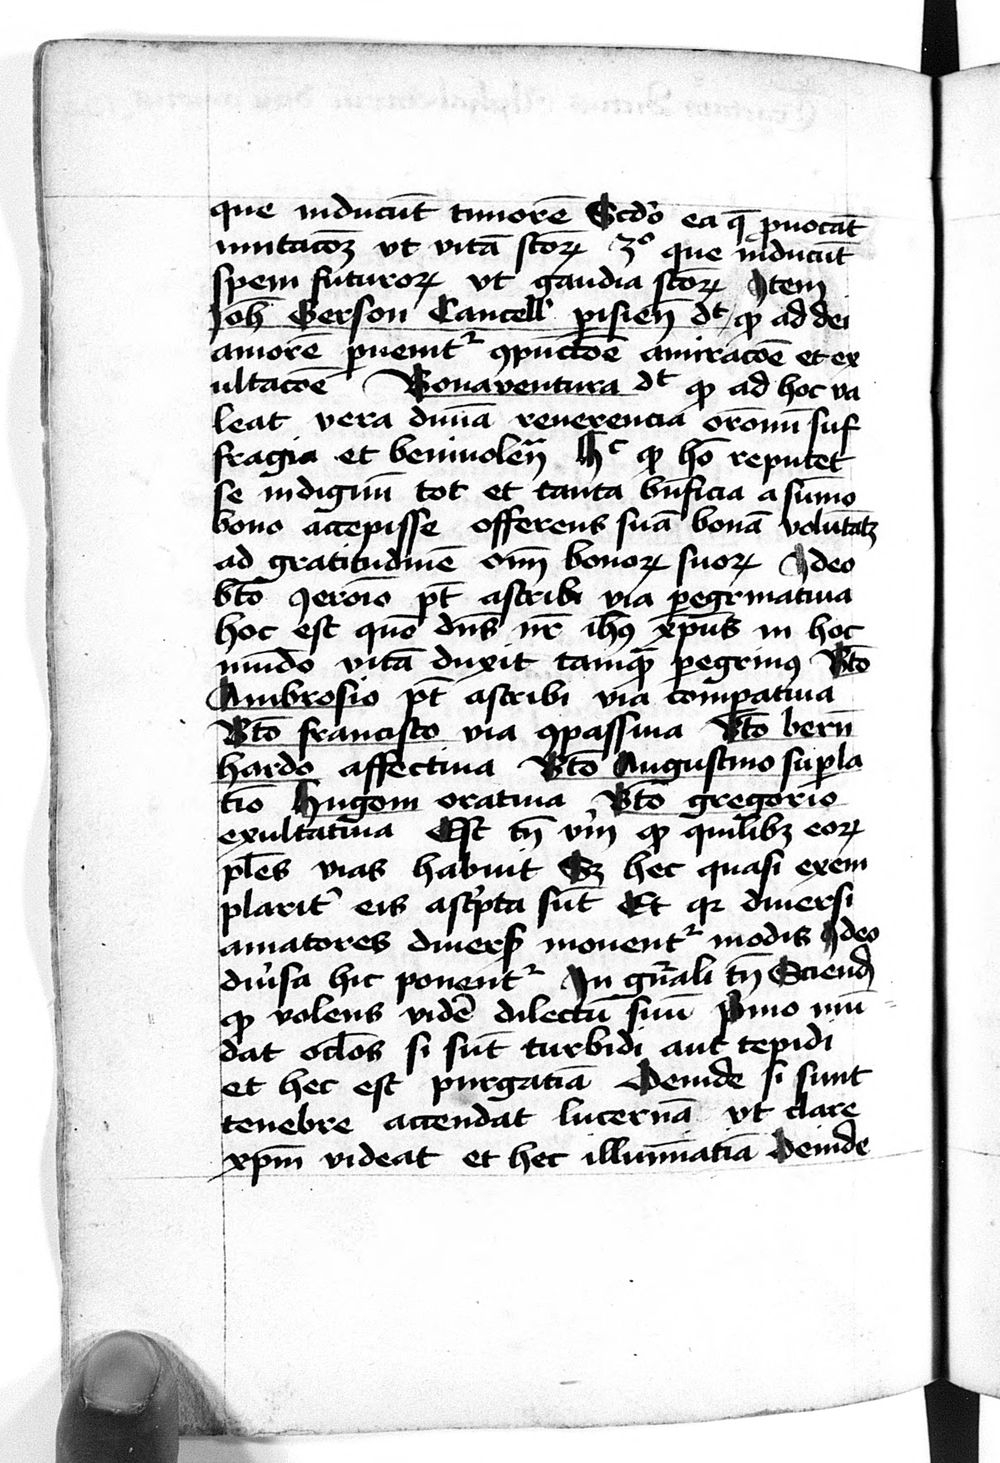 que inducūt timorē Scdo ea q̄ ꝓuocāt
imitacoꝫ vt vitā sctoꝝ 3º que inducūt
spem futuroꝝ vt gaudia sctoꝝ Item
Joh Gerson Cancell' ꝑisien̄ dt ꝙ ad dei
amorē ꝑuenitᷣ ꝯpūctōe amiracōe et ex
ultacōe Bonaventura dt ꝙ ad hoc va
leat vera diuīa reuerencia orōnū suf
fragia et beniuolen̄ Hᶜ ꝙ hō reputet
se indignū tot et tanta bn̄ficia a sūmo
bono accepisse offerens suā bonā volūtatꝫ
ad gratitudinē om̄ bonoꝝ suoꝝ Ideo
btō Jeronīo pt̄ ascribi via ꝑegrinatiua
hoc est quō dn̄s nr̄ ihꝯ xp̄us in hoc
mūdo vitā duxit tamqꝫ ꝑegrinꝯ Btō
Ambrosio pt̄ ascribi via comꝑatiua
Btō francisco via ꝯpassiua Btō bern̄
hardo affectiua Btō Augustino suꝑla
tīo Hugom oratiua Btō gregorio
exultatiua Est tn̄ vᷣm ꝙ quilibꝫ eoꝝ
pl̄es vias habuit Sꝫ hec quasi exem
plaritᷣ eis ascᷣpta sūt Et qꝛ diuersi
amatores diuersꝭ mouentᷣ modis Ideo
diuᷣsa hic ponentᷣ In gn̄ali tn̄ Sciend
ꝙ volens vidē dilectū suū Pᷣmo mū
dat oclōs si sūt turbidi aut tepidi
et hec est purgatiā Deinde si sunt
tenebre accendat lucernā vt clare
xp̄m videat et hec illuminatiā Deinde